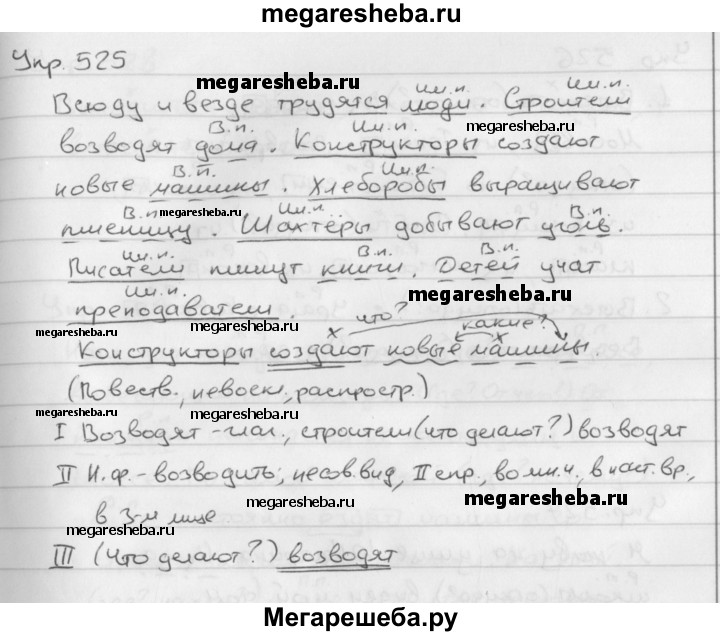 megaresheba.ru
Упр. 525
megaresheba.ru Им.п. Им.п.
Всюду и везде трудятся люди. Строители
В.п. Им.п. megaresheba.ru
возводят дома. Конструкторы создают
В.п. Им.п.
новые машины. Хлеборобы выращивают
В.п. megaresheba.ru Им.п. В.п.
пшеницу. Шахтёры добывают уголь.
Им.п. В.п. В.п.
Писатели пишут книги. Детей учат
Им.п. megaresheba.ru
преподаватели.
megaresheba.ru х что? какие? х
Конструкторы создают новые машины.
(Повеств., невоскл., распростр.)
megaresheba.ru megaresheba.ru
I Возводят - глаг., строители (что делают?) возводят
II Н.ф. - возводить, несов. вид, II спр., во мн.ч., в наст. вр.,
megaresheba.ru megaresheba.ru
в 3-м лице
megaresheba.ru
III (Что делают?) возводят
Мегарешеба.ру